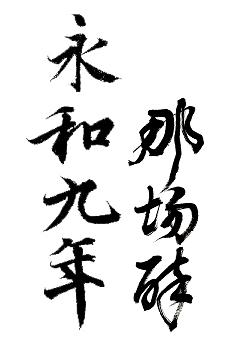 永和九年
那场醉